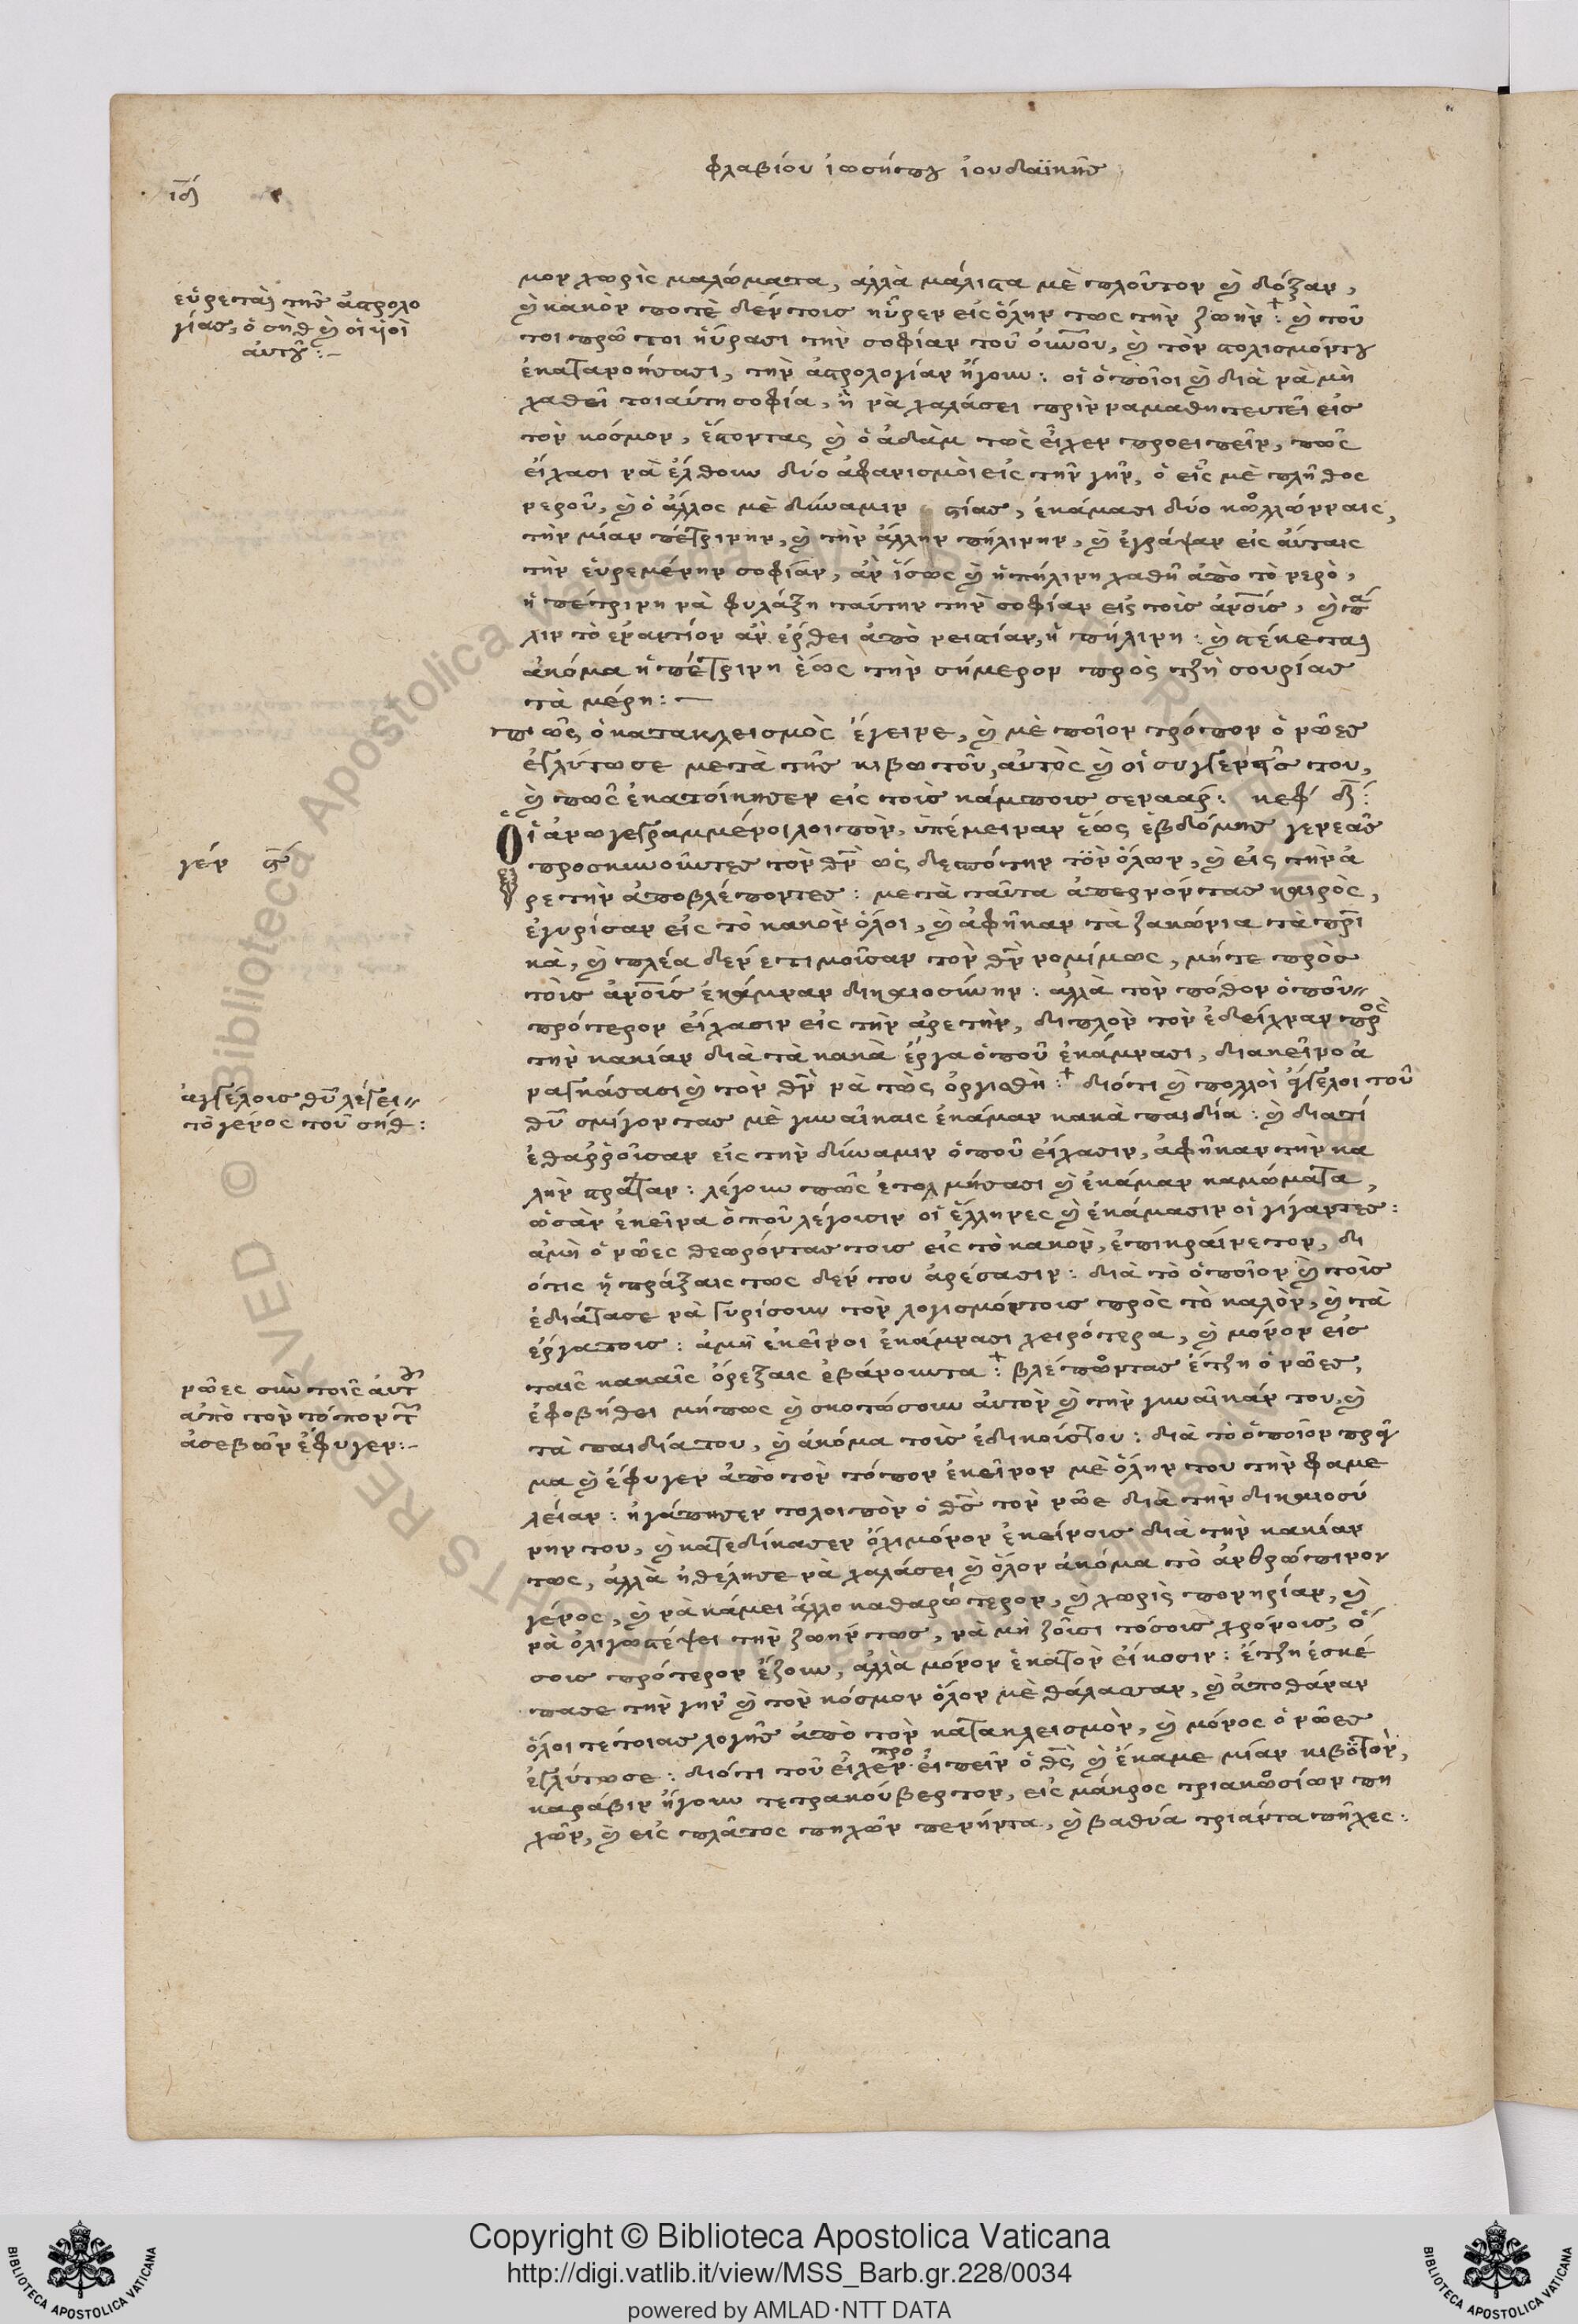 φλαβίου ἰωσήπου ἰουδαϊκῆς
ιδ
μον χωρὶς μαλώματα, ἀλλὰ μάλιστα μὲ πλοῦτον καὶ δόξαν,
εὑρεταὶ τῆς ἀστρολο
γίας, ὁ σὴθ καὶ οἱ υἱοὶ
αὐτοῦ:-
καὶ κακὸν ποτὲ δέν τοις ηὗρεν εἰς ὅλην τως τὴν ζωήν: καὶ τοῦ
τοι πρῶτοι ηὕρασι τὴν σοφίαν τοῦ οὐνοῦ, καὶ τὸν στολισμόν του
ἐκαταροήσασι, τὴν ἀστρολογίαν ἤγουν: οἱ ὁποῖοι καὶ διὰ νὰ μὴ
χαθεῖ τοιαύτη σοφία, ἢ νὰ χαλάσει πρὶν ναμαθητευτεῖ εἰς
τὸν κόσμον, ἔστοντας καὶ ὁ ἀδὰμ τὼς εἶχεν προειπεῖν, πῶς
εἴχασι νὰ ἔλθουν δύο ἀφανισμὸι εἰς τὴν γῆν, ὁ εἷς μὲ πλῆθος
νεροῦ, καὶ ὁ ἄλλος μὲ δύναμιν στίας, ἐκάμασι δύο κωλλώνναις,
τὴν μίαν πέτρινην, καὶ τὴν ἄλλην πήλινην, καὶ ἐγράψαν εἰς ἀύταις
τὴν εὑρεμένην σοφίαν, ἀν ἴσως καὶ ἡ πήλινη χαθῆ ἀπὸ τὸ νερὸ,
ἡ πέτρινη νὰ φυλάξη ταύτην τὴν σοφίαν εἰς τοὶς ἀνοὶς, καὶ πά
λιν τὸ ἐναντίον ἀν ἐρθει ἀπὸ νειστίαν, ἡ πήλινη: καὶ στέκεται
ἀκόμα ἡ πέτρινη ἑὼς τὴν σήμερον πρὸς τζὴ σουρίας
τὰ μέρη:-
πῶς ὁ κατακλεισμὸς ἔγεινε, καὶ μὲ ποῖον τρόπον ὁ νῶες
ἐγλύτωσε μετὰ τῆς κιβωτοῦ, αὐτὸς καὶ οἱ συγγενεῖς του,
καὶ πῶς ἐκατοίκησεν εἰς τοὶς κάμποις σεναάρ: κεφ δ:
Οἱ ἀνωγεγραμμένοι λοιπὸν, ὑπέμειναν ἕως ἑβδόμης γενεᾶς
γέν ϛ
προσκυνοῦντες τὸν θν ὡς δεσπότην τὸν ὅλων, καὶ εἰς τὴν ἀ
ρετὴν ἀποβλέποντες: μετὰ ταῦτα ἀπερνόντας καιρὸς,
ἐγυρίσαν εἰς τὸ κακὸν ὅλοι, καὶ ἀφῆκαν τὰ ζακώνια τὰ πρι
κὰ, καὶ πλέα δέν ετιμοῦσαν τὸν θν νομίμως, μήτε πρὸς
τοὶς ἀνοὶς ἐκάμναν δικαιοσύνην: ἀλλὰ τὸν πόθον ὁποῦ
πρότερον εἴχασιν εἰς τὴν ἀρετὴν, διπλὸν τὸν ἐδείχναν πρὸς
τὴν κακίαν διὰ τὰ κακὰ ἔργα ὁποῦ ἐκάμνασι, διακεῖνο ἀ
ναγκάσασι καὶ τὸν θν νὰ τὼς ὀργισθῆ: διότι καὶ πολλοὶ ἄγγελοι τοῦ
ἀγγέλοις θυ λέγει
τὸ γένος τοῦ σὴθ:
θυ σμίγοντας μὲ γυναῖκαις ἐκάμαν κακὰ παιδία: καὶ διατί
ἐθαρροῦσαν εἰς τὴν δύναμιν ὁποῦ εἴχασιν, ἀφῆκαν τὴν κα
λὴν στράταν: λέγουν πῶς ἐτολμήσασι καὶ ἐκάμαν καμώματα,
ὡσὰν ἐκεῖνα ὁποῦ λέγουσιν οἱ ἕλληνες καὶ ἐκάμασιν οἱ γίγαντες:
ἀμὴ ὁ νῶες θεωρόντας τοις εἰς τὸ κακὸν, ἐπικραίνετον, δι
ότις ἡ πράξαις τως δέν του ἀρέσασιν: διὰ τὸ ὁποῖον καὶ τοὶς
ἐδιάτασε νὰ γυρίσουν τὸν λογισμόν τοις πρὸς τὸ καλὸν, καὶ τὰ
έργα τοις: ἀμὴ ἐκεῖνοι ἐκάμνασι χειρότερα, καὶ μόνον εἰς
ταὶς κακαῖς ὀρεξαις ἐβάνουντα: βλέπωντας ἔτζη ὁ νῶες,
νῶες σὺν τοῖς ἀυτ
ἀπὸ τὸν τόπον τ
ἀσεβῶν ἔφυγεν:-
ἐφοβήθει μήπως καὶ σκοτώσουν ἀυτὸν καὶ τὴν γυναῖκάν του, καὶ
τὰ παιδία του, καὶ ἀκόμα τοὶς ἐδικοίς του: διὰ τὸ ὁποῖον πρᾶγ
μα καὶ ἔφυγεν ἀπὸ τὸν τόπον ἐκεῖνον μὲ ὅλην του τὴν φαμε
λείαν: ἠγάπησεν τολοιπὸν ὁ θς τὸν νῶε διὰ τὴν δικαιοσύ
νην του, καὶ κατεδίκασεν ὄχι μόνον ἐκείνοις διὰ τὴν κακίαν
τως, ἀλλὰ ἠθέλησε νὰ χαλάσει καὶ ὅλον ἀκόμα τὸ ἀνθρώπινον
γένος, καὶ νὰ κάμει ἄλλο καθαρώτερον, καὶ χωρὶς πονηρίαν, καὶ
νὰ ὀλιγωστέψει τὴν ζωήν τως, νὰ μὴ ζοῦσι τόσοις χρόνοις, ὅ
σοις πρότερον ἔζουν, ἀλλὰ μόνον ἑκατὸν εἴκοσιν: ἔτζη ἐσκέ
πασε τὴν γῆν καὶ τὸν κόσμον ὅλον μὲ θάλασσαν, καὶ ἀποθάναν
ὅλοι τέτοιας λογῆς ἀπὸ τὸν κατακλεισμὸν, καὶ μόνος ὁ νῶες
ἐγλύτωσε: διότι τοῦ εἶχεν προειπεῖν ὁ θς, καὶ ἔκαμε μίαν κιβωτὸν,
καράβιν ἤγουν τετρακούβερτον, εἰς μάκρος τριακωσίων πη
χῶν, καὶ εἰς πλάτος πηχῶν πενήντα, καὶ βαθύα τριάντα πῆχες:
Copyright © Biblioteca Apostolica Vaticana
http://digi.vatlib.it/view/MSS_Barb.gr.228/0034
powered by AMLAD·NTT DATA